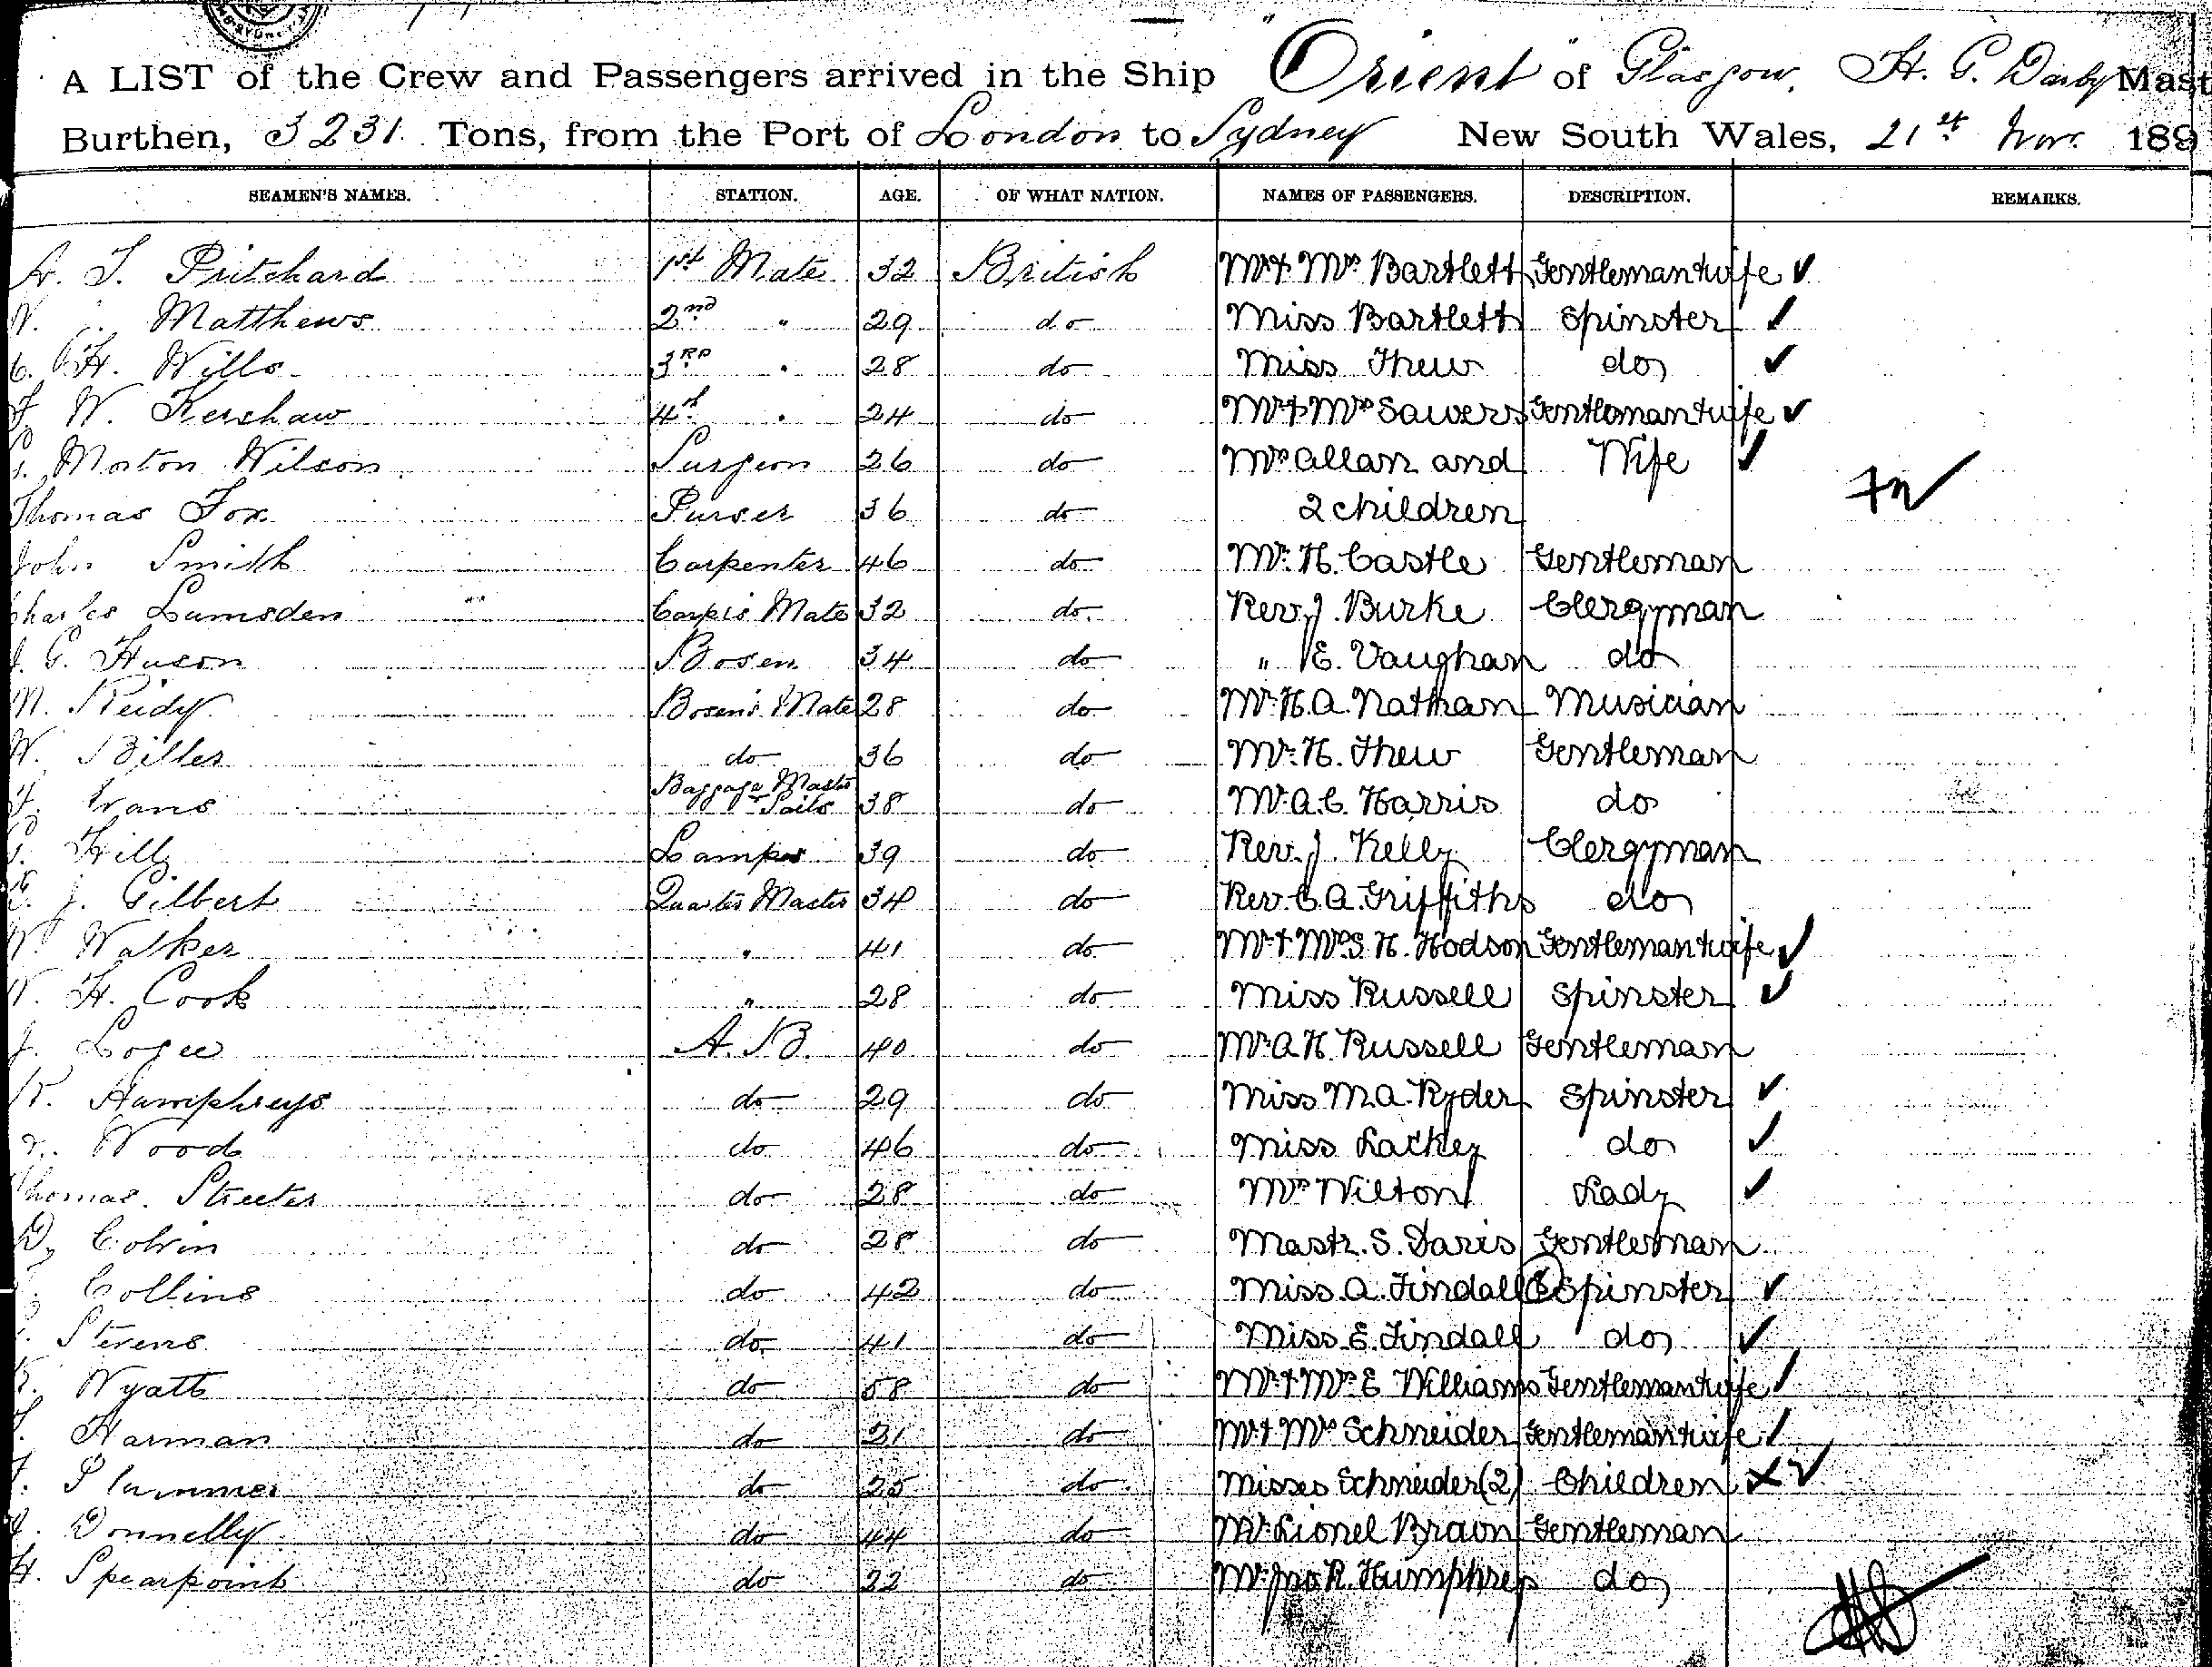 A LIST of the Crew and Passengers arrived in the Ship "Orient" of Glasgow, Mast
Burthen, 3231 Tons, from the Port of London to Sydney New South Wales, 21st Nov. 189
SEAMEN'S NAMES. STATION. AGE. OF WHAT NATION. NAMES OF PASSENGERS. DESCRIPTION. REMARKS.
T. Pritchard 1st Mate 32 British Mr & Mrs Bartlett Gentleman & wife
Matthews 2nd " 29 do Miss Bartlett Spinster
H. Wills 3RD " 28 do Miss Thew do
W. Kershaw 4th " 24 do Mr & Mrs Sawers Gentleman & wife
Morton Wilson Surgeon 26 do Mrs Allan and Wife
Thomas Fox Purser 36 do 2 children
John Smith Carpenter 46 do Mr. H. Castle Gentleman
Charles Lumsden Carp's Mate 32 do Rev. J. Burke Clergyman
G. Huson Bosen 34 do " E. Vaughan do
M. Reidy Bosen's Mate 28 do Mr. H. A. Nathan Musician
W. Biller do 36 do Mr. H. Thew Gentleman
Evans Baggage Master & Sails 38 do Mr. A. C. Harris do
Hill Lamps 39 do Rev. J. Kelly Clergyman
J. Gilbert Quarter Master 34 do Rev. C. A. Griffiths do
W. Walker " 41 do Mr & Mrs S. H. Hodson Gentleman & wife
W. H. Cook " 28 do Miss Russell Spinster
J. A. B. 40 do Mr A. H. Russell Gentleman
Humphreys do 29 do Miss M. A. Ryder Spinster
Wood do 46 do Miss Lackey do
Thomas Streeter do 28 do Mrs Wilton Lady
D. Colvin do 28 do Mastr. S. Davis Gentleman
Collins do 42 do Miss A. Tindall Spinster
Stevens do 41 do Miss E. Tindall do
Wyatt do 58 do Mr & Mrs E Williams Gentleman & wife
Harman do 21 do Mr & Mrs Schneider Gentleman & wife
Plummer do 25 do Misses Schneider (2) Children
Donnelly do 44 do Mr. Lionel Braun Gentleman
H. Spearpoint do 22 do Mr. Jno R. Humphreys do